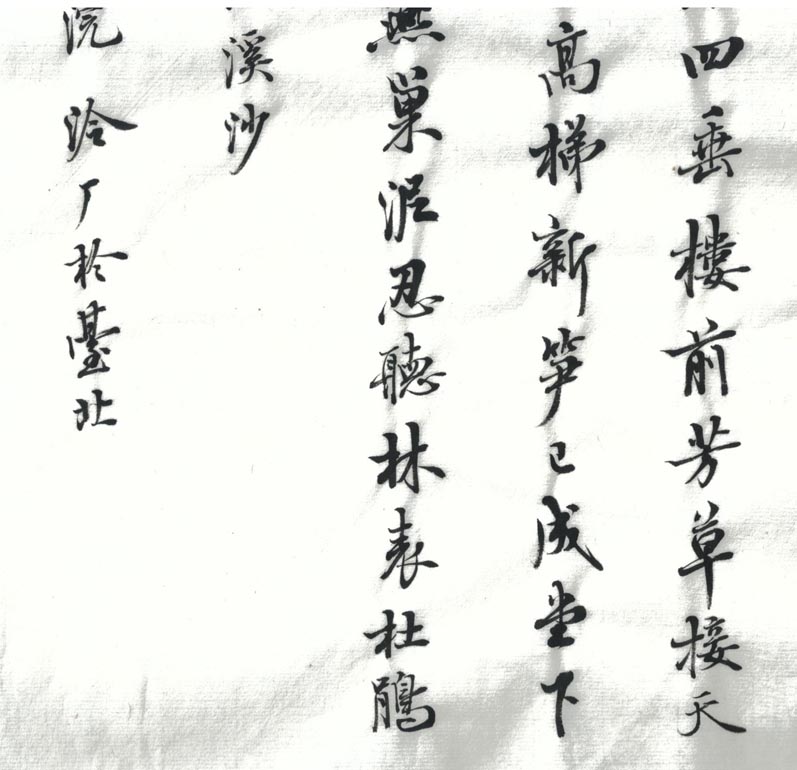 四垂樓前芳草接天
高梯新笋已成堂下
燕巢泥忍聽林表杜鵑
溪沙
於臺北